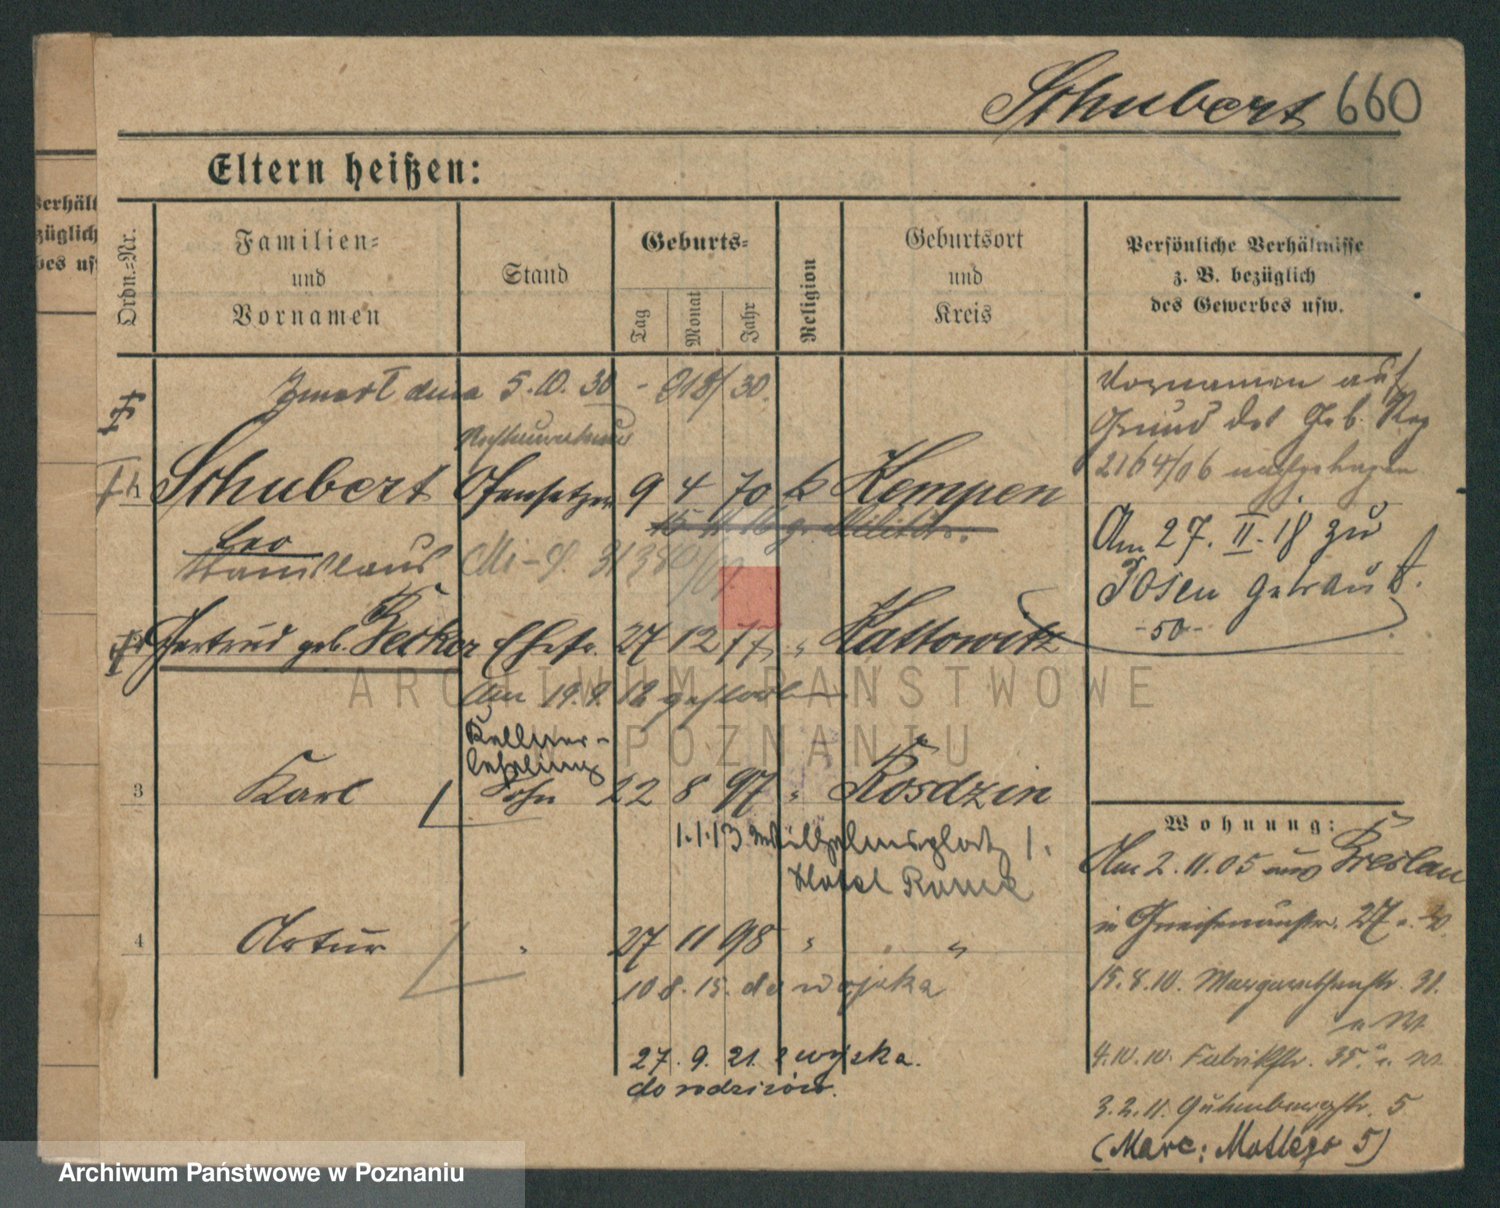 Schubert 660
Eltern heißen:
Verhält
züglich
bes usw
Ordn.=Nr.
Familien=
und
Vornamen
Stand
Geburts=
Tag
Monat
Jahr
Religion
Geburtsort
und
Kreis
Persönliche Verhältnisse
z. B. bezüglich
des Gewerbes usw.
Zmarł dnia 5.10.30 - 918/30.
Vornamen auf
Grund der Geb. Reg
2164/06 nachgetragen
Schubert Ofensetzer 9 4 70 k Kempen
Leo
Stanislaus
Am 27. II. 18 zu
Posen getraut.
-50-
Gertrud geb. Becker Ehefr. 27 12 77 " Kattowitz
Am 19.9. 12 gestorben
Kellner-
lehrling
3 Karl Sohn 22 8 97 " Rosdzin
1.1.13 Wilhelmsplatz 1.
Hotel Rome
Wohnung:
Am 2.11.05 aus Breslau
in Gneisenaustr. 27
4 Artur " 27 11 98 " "
10 8. 15. do wojska
15.8.10. Margarethenstr. 31.
27. 9. 21. z wojska.
do rodziców.
4.10.10. Fabrikstr. 35.
3.2.11. Gutenbergstr. 5
(Marc: Mottego 5)
ARCHIWUM PAŃSTWOWE
W POZNANIU
Archiwum Państwowe w Poznaniu